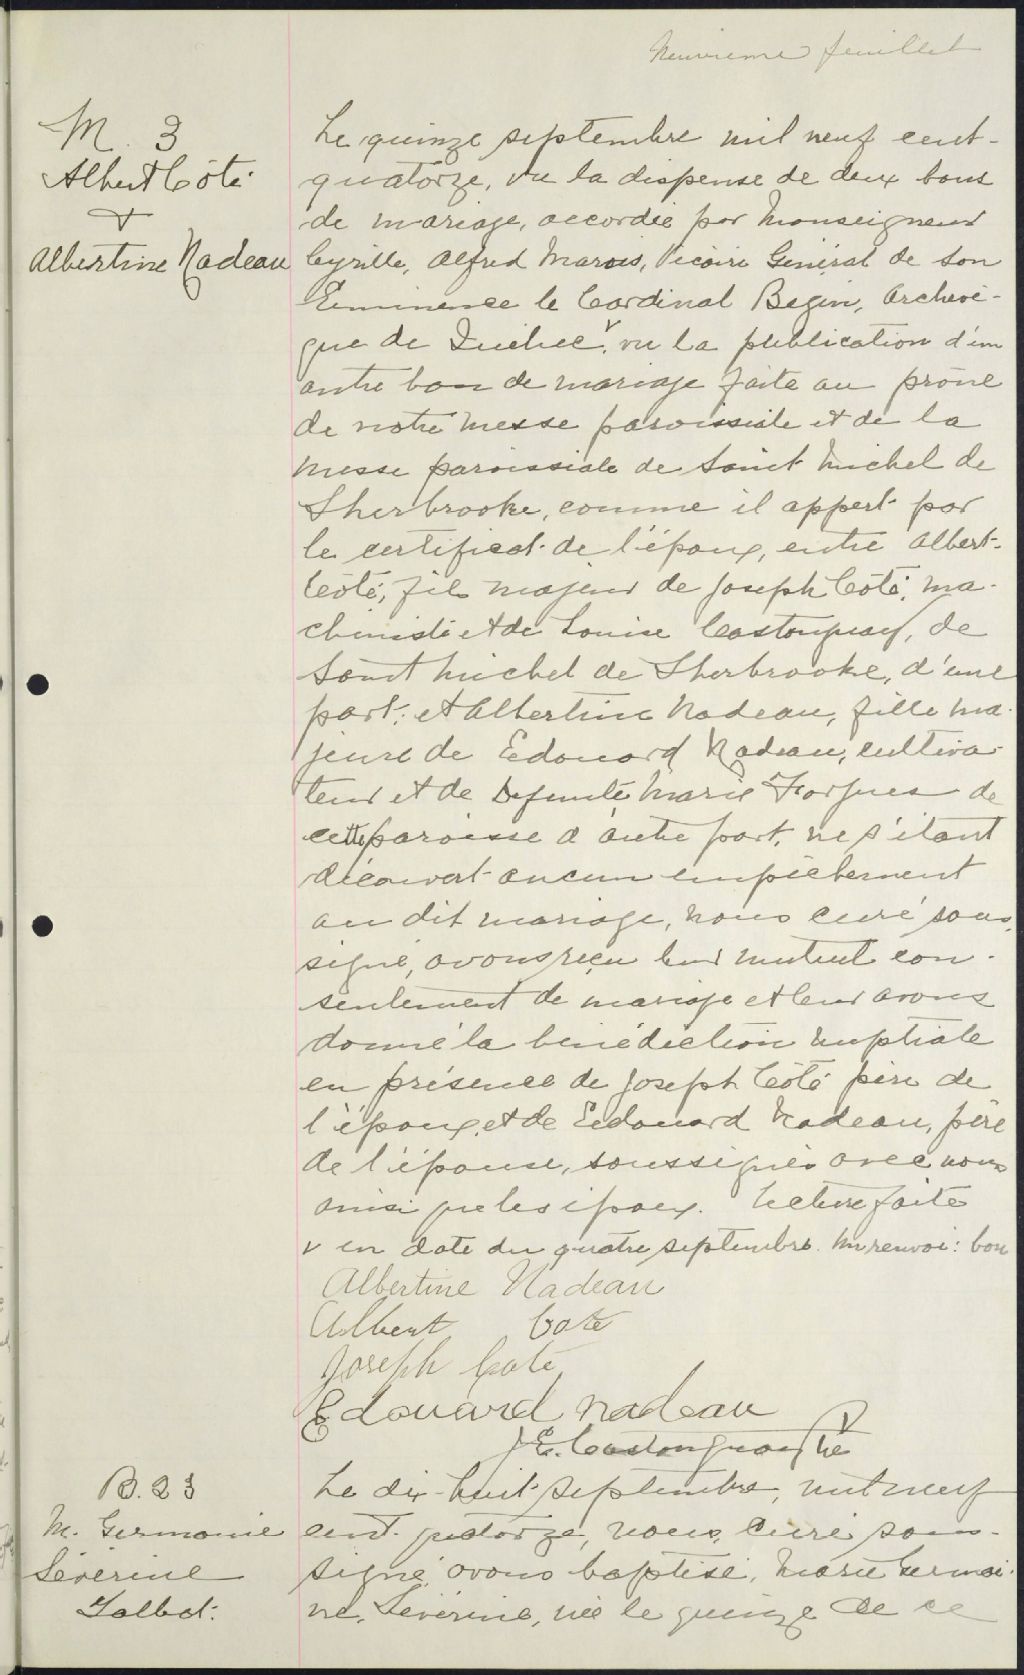 Neuvieme feuillet
M. 3
Albert Côté
&
Albertine Nadeau
Le quinze septembre mil neuf cent-
quatorze, vu la dispense de deux bans
de mariage, accordée par Monseigneur
Cyrille, Alfred Marois, Vicaire Général de Son
Eminence le Cardinal Begin, archevê-
que de Québec, v vu la publication d'un
autre ban de mariage faite au prône
de notre messe paroissiale et de la
messe paroissiale de Saint Michel de
Sherbrooke, comme il appert par
le certificat de l'époux, entre Albert
Côté, fils majeur de Joseph Côté, ma-
chiniste et de Louise Castonguay, de
Saint Michel de Sherbrooke, d'une
part; et Albertine Nadeau, fille ma-
jeure de Edouard Nadeau, cultiva-
teur et de Defunte Marie Forgues de
cette paroisse d'autre part, ne s'étant
découvert aucun empêchement
au dit mariage, nous curé sous-
signé, avons reçu leur mutuel con-
sentement de mariage et leur avons
donné la bénédiction nuptiale
en présence de Joseph Côté père de
l'époux, et de Edouard Nadeau, père
de l'épouse, soussignés avec nous
ainsi que les époux. Lecture faite
v en date du quatre septembre. Un renvoi: bon
Albertine Nadeau
Albert Cote
Joseph Coté
Edouard Nadeau
J. E. Castonguay Ptre
B. 23
M. Germanie
Séverine
Talbot.
Le dix-huit septembre, mil neuf
cent quatorze, nous, curé sous-
signé, avons baptisé, Marie Germai-
ne, Séverine, née le quinze de ce